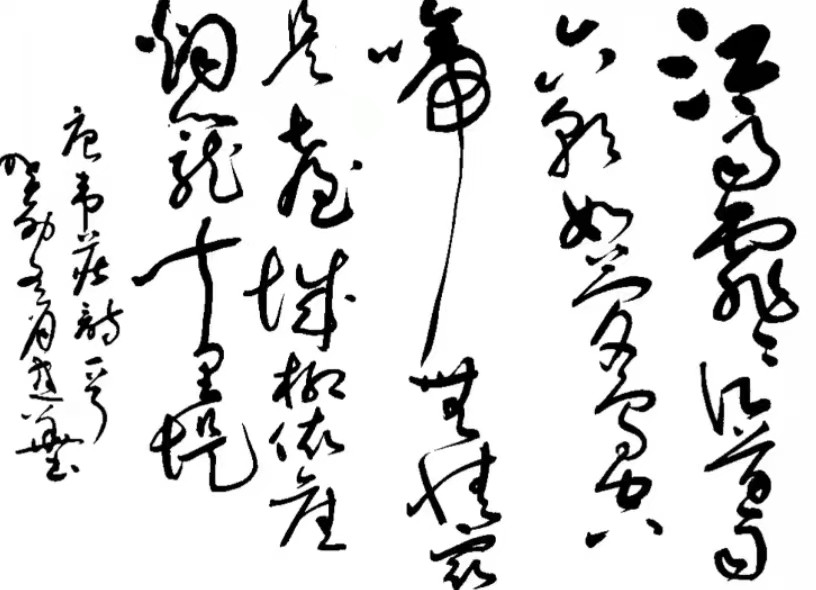 江雨霏々江草齊
六朝如夢鳥空
啼無情最
是臺城柳依舊
烟籠十里堤
唐韋莊詩一首
癸卯 月 華書